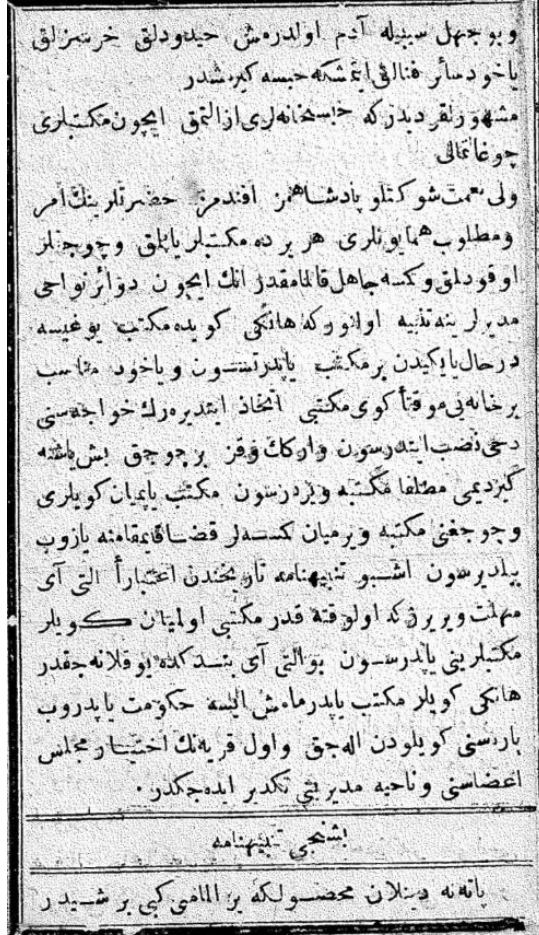 و بو جهل سببیله آدم اولدرمش حیدودلق خرسزلق
یاخود سائر فنالق ایتمشکه حبسه کیرمشدر
مشهور لقردیدرکه حبسخانه‌لری ازالتمق ایچون مکتبلری
چوغاتمالی
ولی نعمت شوکتلو پادشاهمز افندمز حضرتلرینك امر
ومطلوب همایونلری هر یرده مکتبلر یاپلق وچوجقلر
اوقودلق وکمسه جاهل قالمامقدر انك ایچون دوائر نواحی
مدیرلرینه تنبیه اولنورکه هانکی کویده مکتب یوغیسه
درحال یایکیدن بر مکتب یاپدرتسون ویاخود مناسب
بر خانه‌یی موقتاً کوی مکتبی اتخاذ ایتدیره‌رك خواجه‌سنی
دخی نصب ایتدرسون وارکك وقز بر چوجق بش یاشنه
کیردیمی مطلقا مکتبه ویردرسون مکتب یاپمیان کویلری
وچوجغنی مکتبه ویرمیان کمسه‌لر قضا قایمقامنه یازوب
بیلدیرسون اشبو تنبیهنامه تاریخندن اعتباراً التی آی
مهلت ویریرزکه اولوقته قدر مکتبی اولمیان کویلر
مکتبلرینی یاپدرسون بوالتی آی بتدکده یوقلانه‌جقدر
هانکی کویلر مکتب یاپدرمامش ایسه حکومت یاپدروب
پاره‌سنی کویلودن اله‌جق واول قریه‌نك اختیار مجلس
اعضاسنی وناحیه مدیرینی تکدیر ایده‌جکدر ·
بشنجی تنبیهنامه
پاته‌ته دینلان محصولکه یر الماسی کبی بر شیدر